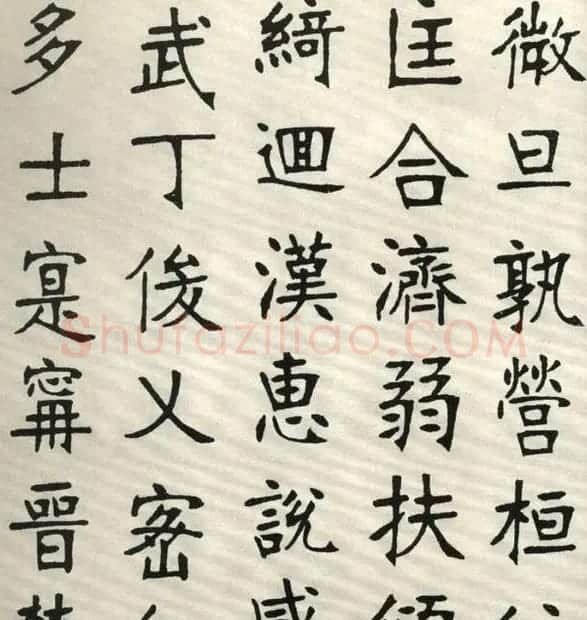 微旦孰營桓
匡合濟弱扶傾
綺迴漢惠說感
武丁俊乂密
多士寔寗晉楚
Shufaziliao.COM